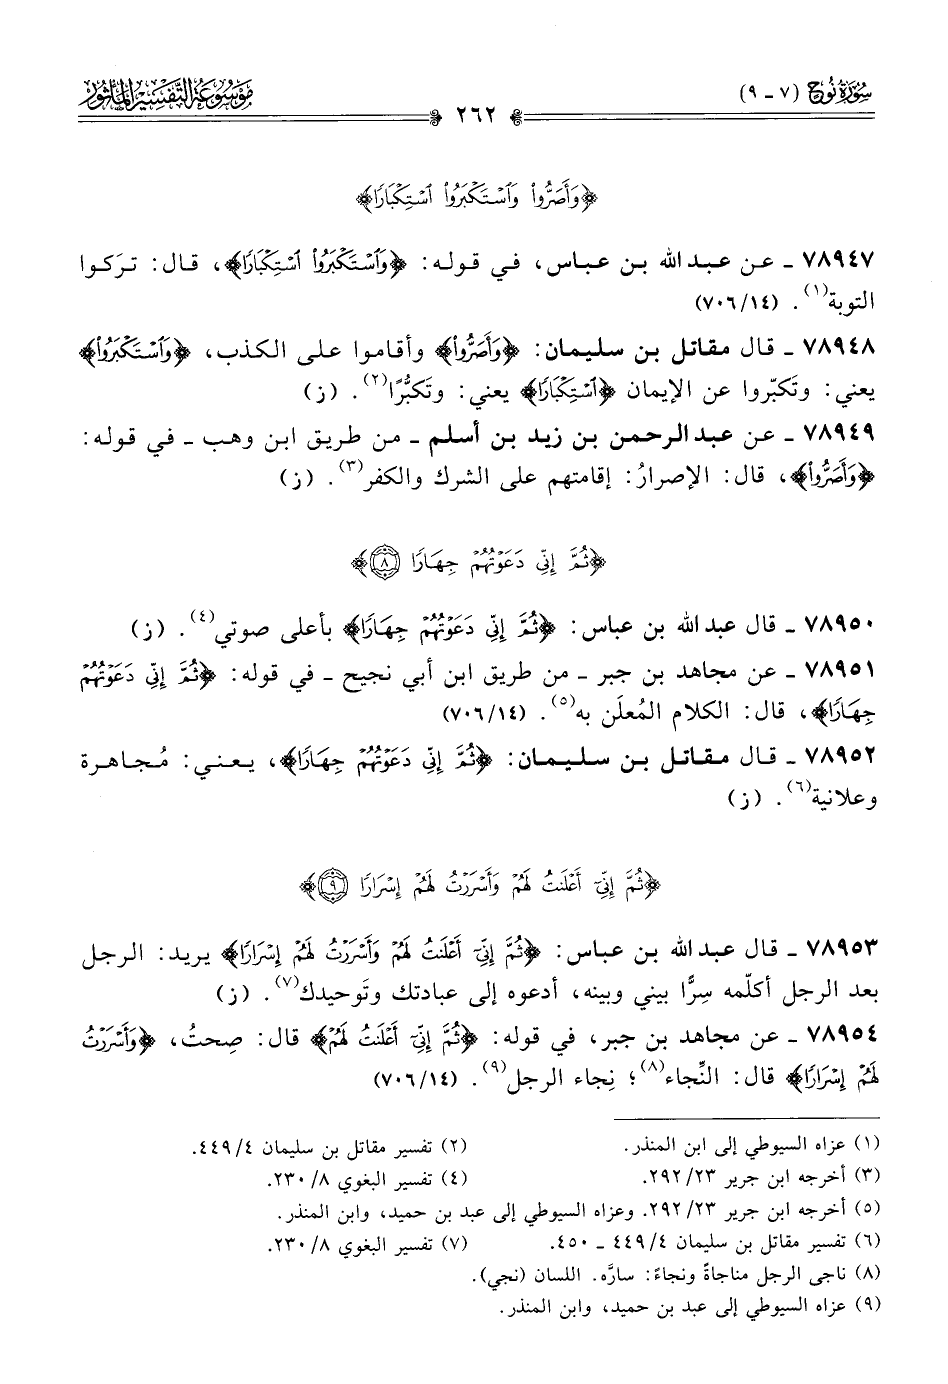 سُورَةُ نُوحٍ (٧ - ٩)
٢٦٢
مَوْسُوعَةُ التَّفْسِيرِ المَأْثُورِ
﴿وَأَصَرُّوا۟ وَٱسْتَكْبَرُوا۟ ٱسْتِكْبَارًا﴾
٧٨٩٤٧ - عن عبد الله بن عباس، في قوله: ﴿وَٱسْتَكْبَرُوا۟ ٱسْتِكْبَارًا﴾، قال: تركوا
التوبة(١). (٧٠٦/١٤)
٧٨٩٤٨ - قال مقاتل بن سليمان: ﴿وَأَصَرُّوا۟﴾ وأقاموا على الكذب، ﴿وَٱسْتَكْبَرُوا۟﴾
يعني: وتَكبّروا عن الإيمان ﴿ٱسْتِكْبَارًا﴾ يعني: وتَكبُّرًا(٢). (ز)
٧٨٩٤٩ - عن عبد الرحمن بن زيد بن أسلم - من طريق ابن وهب - في قوله:
﴿وَأَصَرُّوا۟﴾، قال: الإصرارُ: إقامتهم على الشرك والكفر(٣). (ز)
﴿ثُمَّ إِنِّى دَعَوْتُهُمْ جِهَارًا ٨﴾
٧٨٩٥٠ - قال عبد الله بن عباس: ﴿ثُمَّ إِنِّى دَعَوْتُهُمْ جِهَارًا﴾ بأعلى صوتي(٤). (ز)
٧٨٩٥١ - عن مجاهد بن جبر - من طريق ابن أبي نجيح - في قوله: ﴿ثُمَّ إِنِّى دَعَوْتُهُمْ
جِهَارًا﴾، قال: الكلام المُعلَن به(٥). (٧٠٦/١٤)
٧٨٩٥٢ - قال مقاتل بن سليمان: ﴿ثُمَّ إِنِّى دَعَوْتُهُمْ جِهَارًا﴾، يعني: مُجاهرة
وعلانية(٦). (ز)
﴿ثُمَّ إِنِّىٓ أَعْلَنتُ لَهُمْ وَأَسْرَرْتُ لَهُمْ إِسْرَارًا ٩﴾
٧٨٩٥٣ - قال عبد الله بن عباس: ﴿ثُمَّ إِنِّىٓ أَعْلَنتُ لَهُمْ وَأَسْرَرْتُ لَهُمْ إِسْرَارًا﴾ يريد: الرجل
بعد الرجل أكلّمه سِرًّا بيني وبينه، أدعوه إلى عبادتك وتَوحيدك(٧). (ز)
٧٨٩٥٤ - عن مجاهد بن جبر، في قوله: ﴿ثُمَّ إِنِّىٓ أَعْلَنتُ لَهُمْ﴾ قال: صِحتُ، ﴿وَأَسْرَرْتُ
لَهُمْ إِسْرَارًا﴾ قال: النِّجاء(٨)؛ نِجاء الرجل(٩). (٧٠٦/١٤)
(١) عزاه السيوطي إلى ابن المنذر. (٢) تفسير مقاتل بن سليمان ٤/ ٤٤٩.
(٣) أخرجه ابن جرير ٢٣/ ٢٩٢. (٤) تفسير البغوي ٨/ ٢٣٠.
(٥) أخرجه ابن جرير ٢٣/ ٢٩٢. وعزاه السيوطي إلى عبد بن حميد، وابن المنذر.
(٦) تفسير مقاتل بن سليمان ٤/ ٤٤٩ - ٤٥٠. (٧) تفسير البغوي ٨/ ٢٣٠.
(٨) ناجى الرجل مناجاةً ونجاءً: سارَّه. اللسان (نجي).
(٩) عزاه السيوطي إلى عبد بن حميد، وابن المنذر.